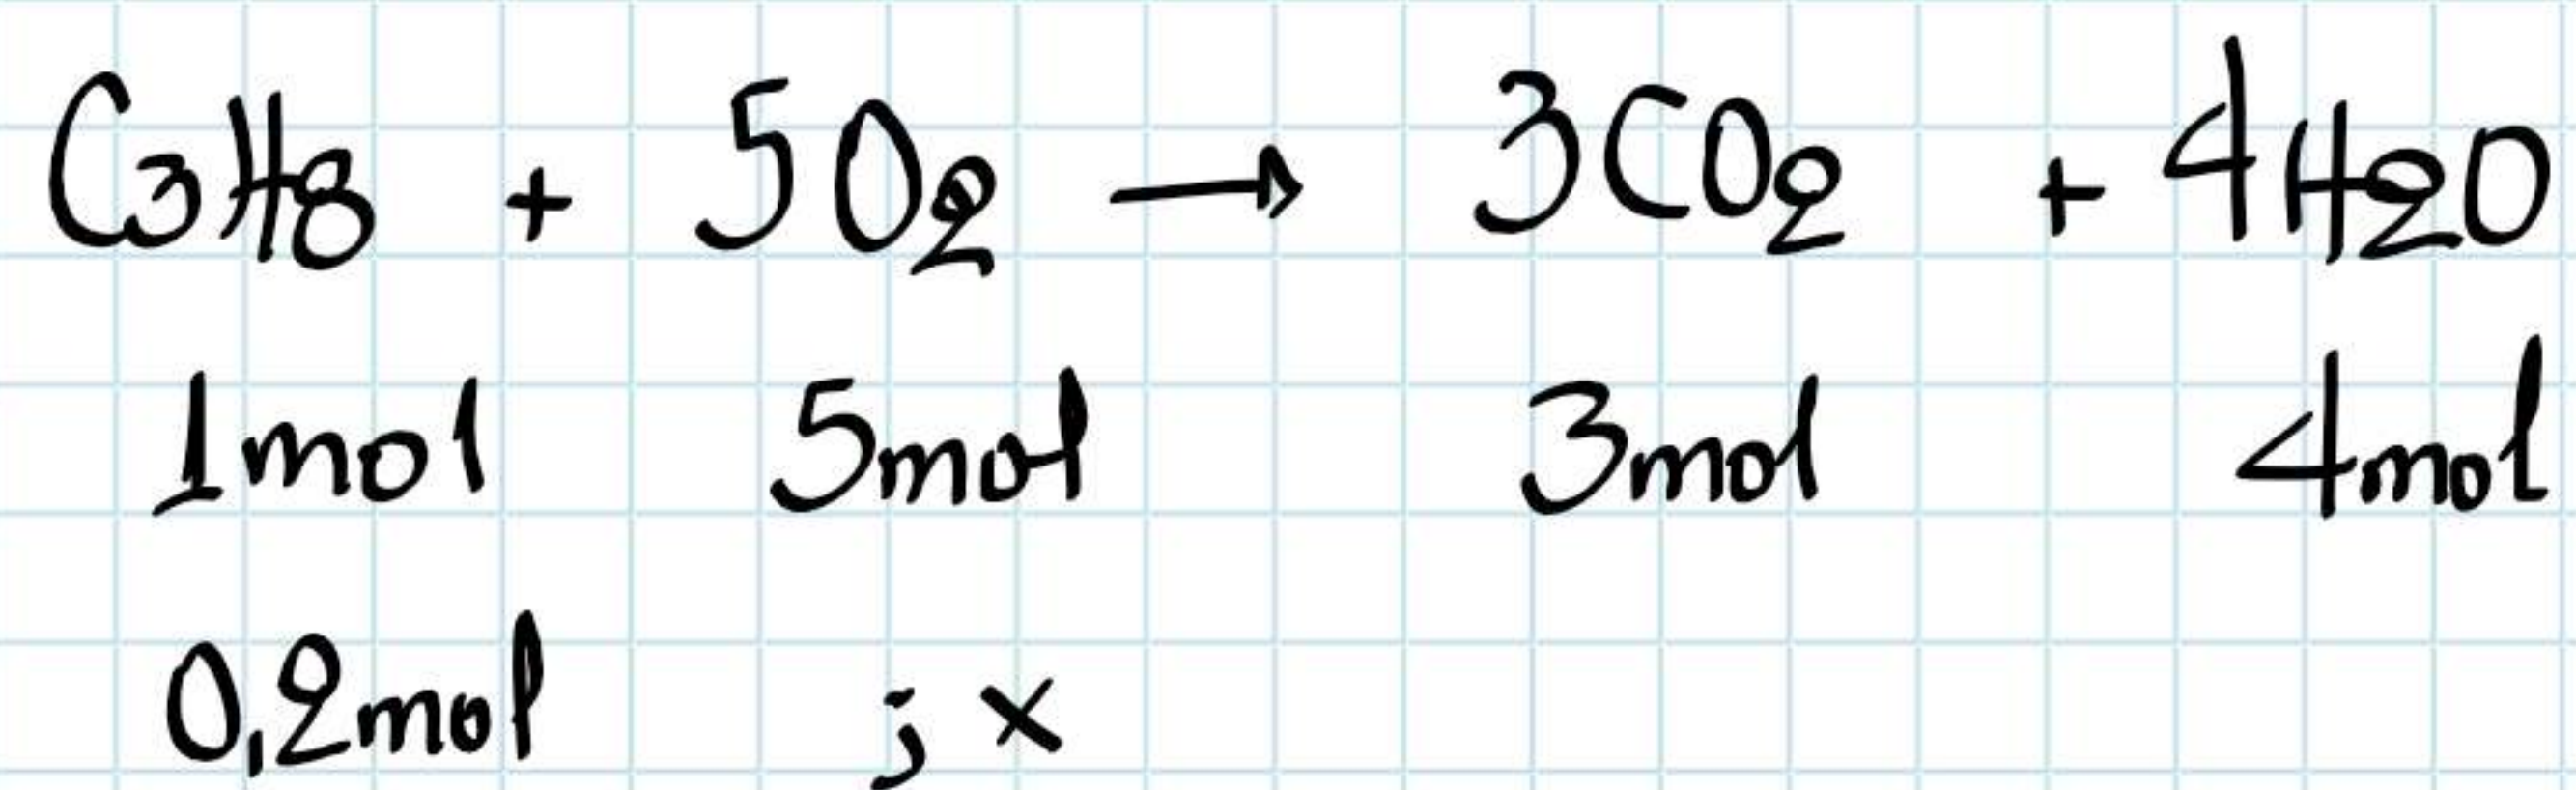 C3H8 + 5O2 → 3CO2 + 4H2O
1mol 5mol 3mol 4mol
0,2mol ; x